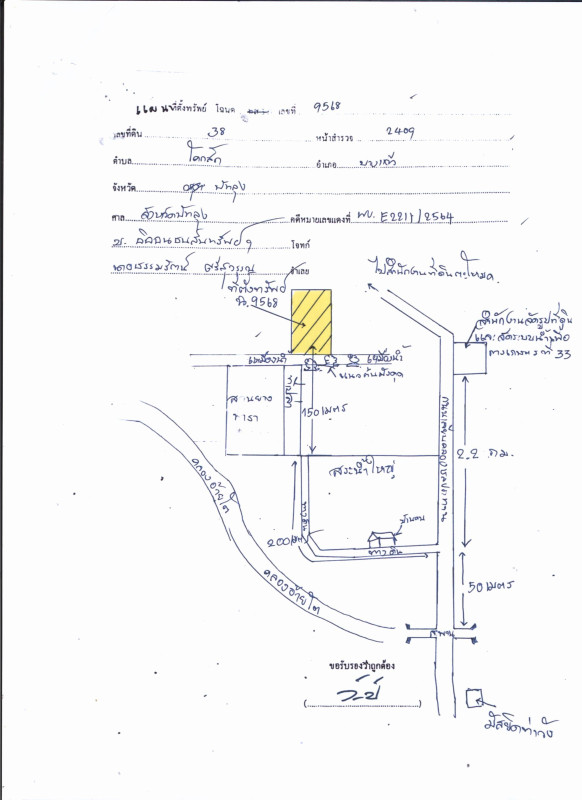 แผนที่ตั้งทรัพย์ โฉนด เลขที่ 9568
เลขที่ดิน 38 หน้าสำรวจ 2409
ตำบล โคกสัก อำเภอ บางแก้ว
จังหวัด พัทลุง
ศาล จังหวัดพัทลุง คดีหมายเลขแดงที่ ผบ. E2211/2564
โจทก์
จำเลย
ที่ตั้งทรัพย์
ฉ.9568
ไปสำนักงานที่ดินตะโหมด
สำนักงานจัดรูปที่ดิน
และจัดระบบน้ำเพื่อ
การเกษตร ที่ 33
เหมืองน้ำ
เหมืองน้ำ
แนวต้นมังคุด
สวนยาง
พารา
150 เมตร
สระน้ำใหญ่
ถนนเลียบคลองชลประทาน
2.2 กม.
คลองอ้ายโต
ทางดิน
200 เมตร
บ้านคน
ทางดิน
คลองอ้ายโต
50 เมตร
สะพาน
ขอรับรองว่าถูกต้อง